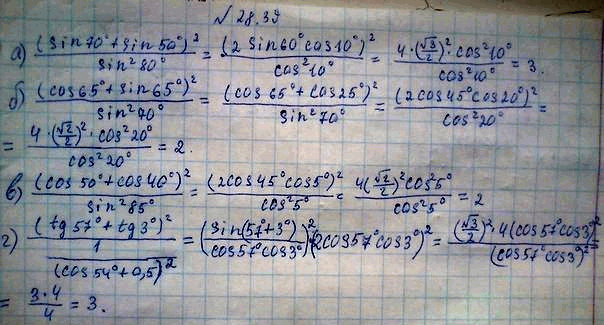 № 28.39
а) (sin70°+sin50°)²/sin²80° = (2sin60°cos10°)²/cos²10° = 4·(√3/2)²·cos²10°/cos²10° = 3.
б) (cos65°+sin65°)²/sin²70° = (cos65°+cos25°)²/sin²70° = (2cos45°cos20°)²/cos²20° =
= 4·(√2/2)²·cos²20°/cos²20° = 2.
в) (cos50°+cos40°)²/sin²85° = (2cos45°cos5°)²/cos²5° = 4(√2/2)²cos²5°/cos²5° = 2
г) (tg57°+tg3°)²/(1/(cos54°+0,5)²) = (sin(57°+3°)/cos57°cos3°)²·(2cos57°cos3°)² = (√3/2)²·4(cos57°cos3°)²/(cos57°cos3°)² =
= 3·4/4 = 3.